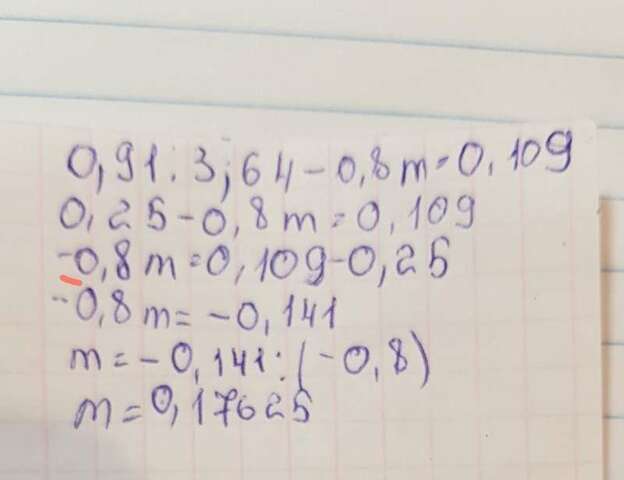 0,91:3,64-0,8m=0,109
0,25-0,8m=0,109
-0,8m=0,109-0,25
-0,8m=-0,141
m=-0,141:(-0,8)
m=0,17625